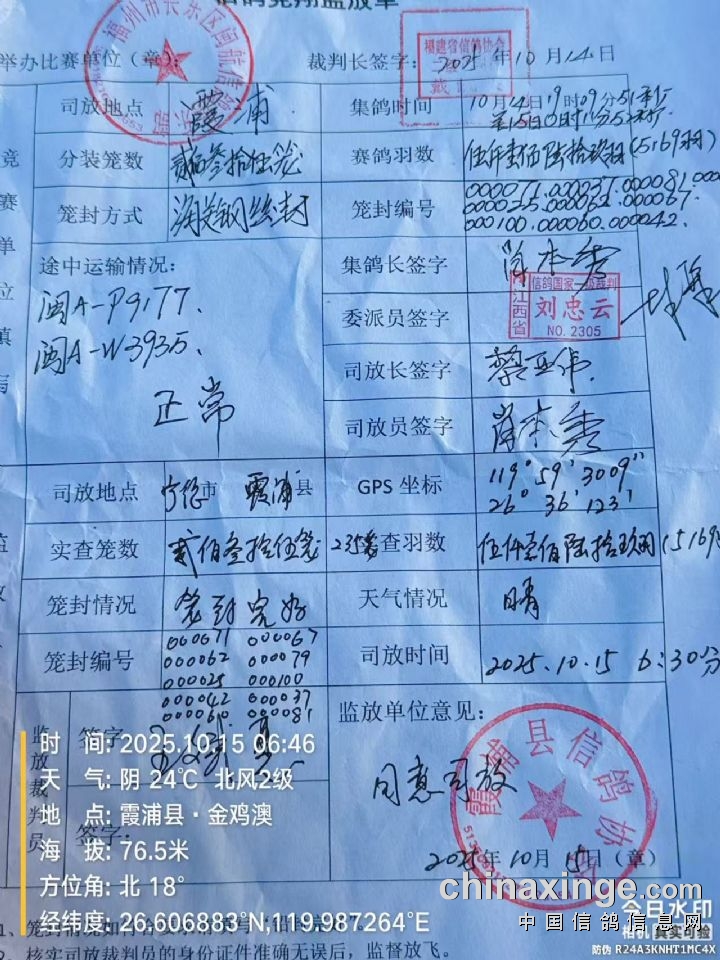 信鸽竞翔监放单
举办比赛单位（章）：
裁判长签字：
2025年10月14日
福州市长乐区闽航信鸽
福建省信鸽协会
司放地点 霞浦
集鸽时间 10月14日19时09分51秒
至15日0时11分52秒
分装笼数 贰佰叁拾伍笼
赛鸽羽数 伍仟壹佰陆拾玖羽(5169羽)
笼封方式 海关钢丝封
笼封编号 000071.000037.000081.
000025.000062.000067.
000100.000060.000042.
途中运输情况：
闽A-P9177.
闽A-W3935.
正常
集鸽长签字 肖本秀
委派员签字
信鸽国家一级裁判
江西省
刘忠云
NO. 2305
司放长签字 蔡亚伟
司放员签字 肖本秀
司放地点 宁德市 霞浦县
GPS 坐标 119° 59' 3009"
26° 36' 123'
实查笼数 贰佰叁拾伍笼 235笼
实查羽数 伍仟壹佰陆拾玖羽(5169
笼封情况 笼封完好
天气情况 晴
笼封编号
000071 000067
000062 000079
000025 000100
000042 000037
000060 000081
司放时间 2025.10.15 6:30分
监放裁判员
签字
签字：
监放单位意见：
同意司放
霞浦县信鸽协会
2025年10月15日（章）
时 间: 2025.10.15 06:46
天 气: 阴 24℃ 北风2级
地 点: 霞浦县·金鸡澳
海 拔: 76.5米
方位角: 北 18°
经纬度: 26.606883°N,119.987264°E
2、核实司放裁判员的身份证件准确无误后，监督放飞。
chinaxinge.com
中国信鸽信息网
今日水印
相机 真实可验
防伪 R24A3KNHT1MC4X